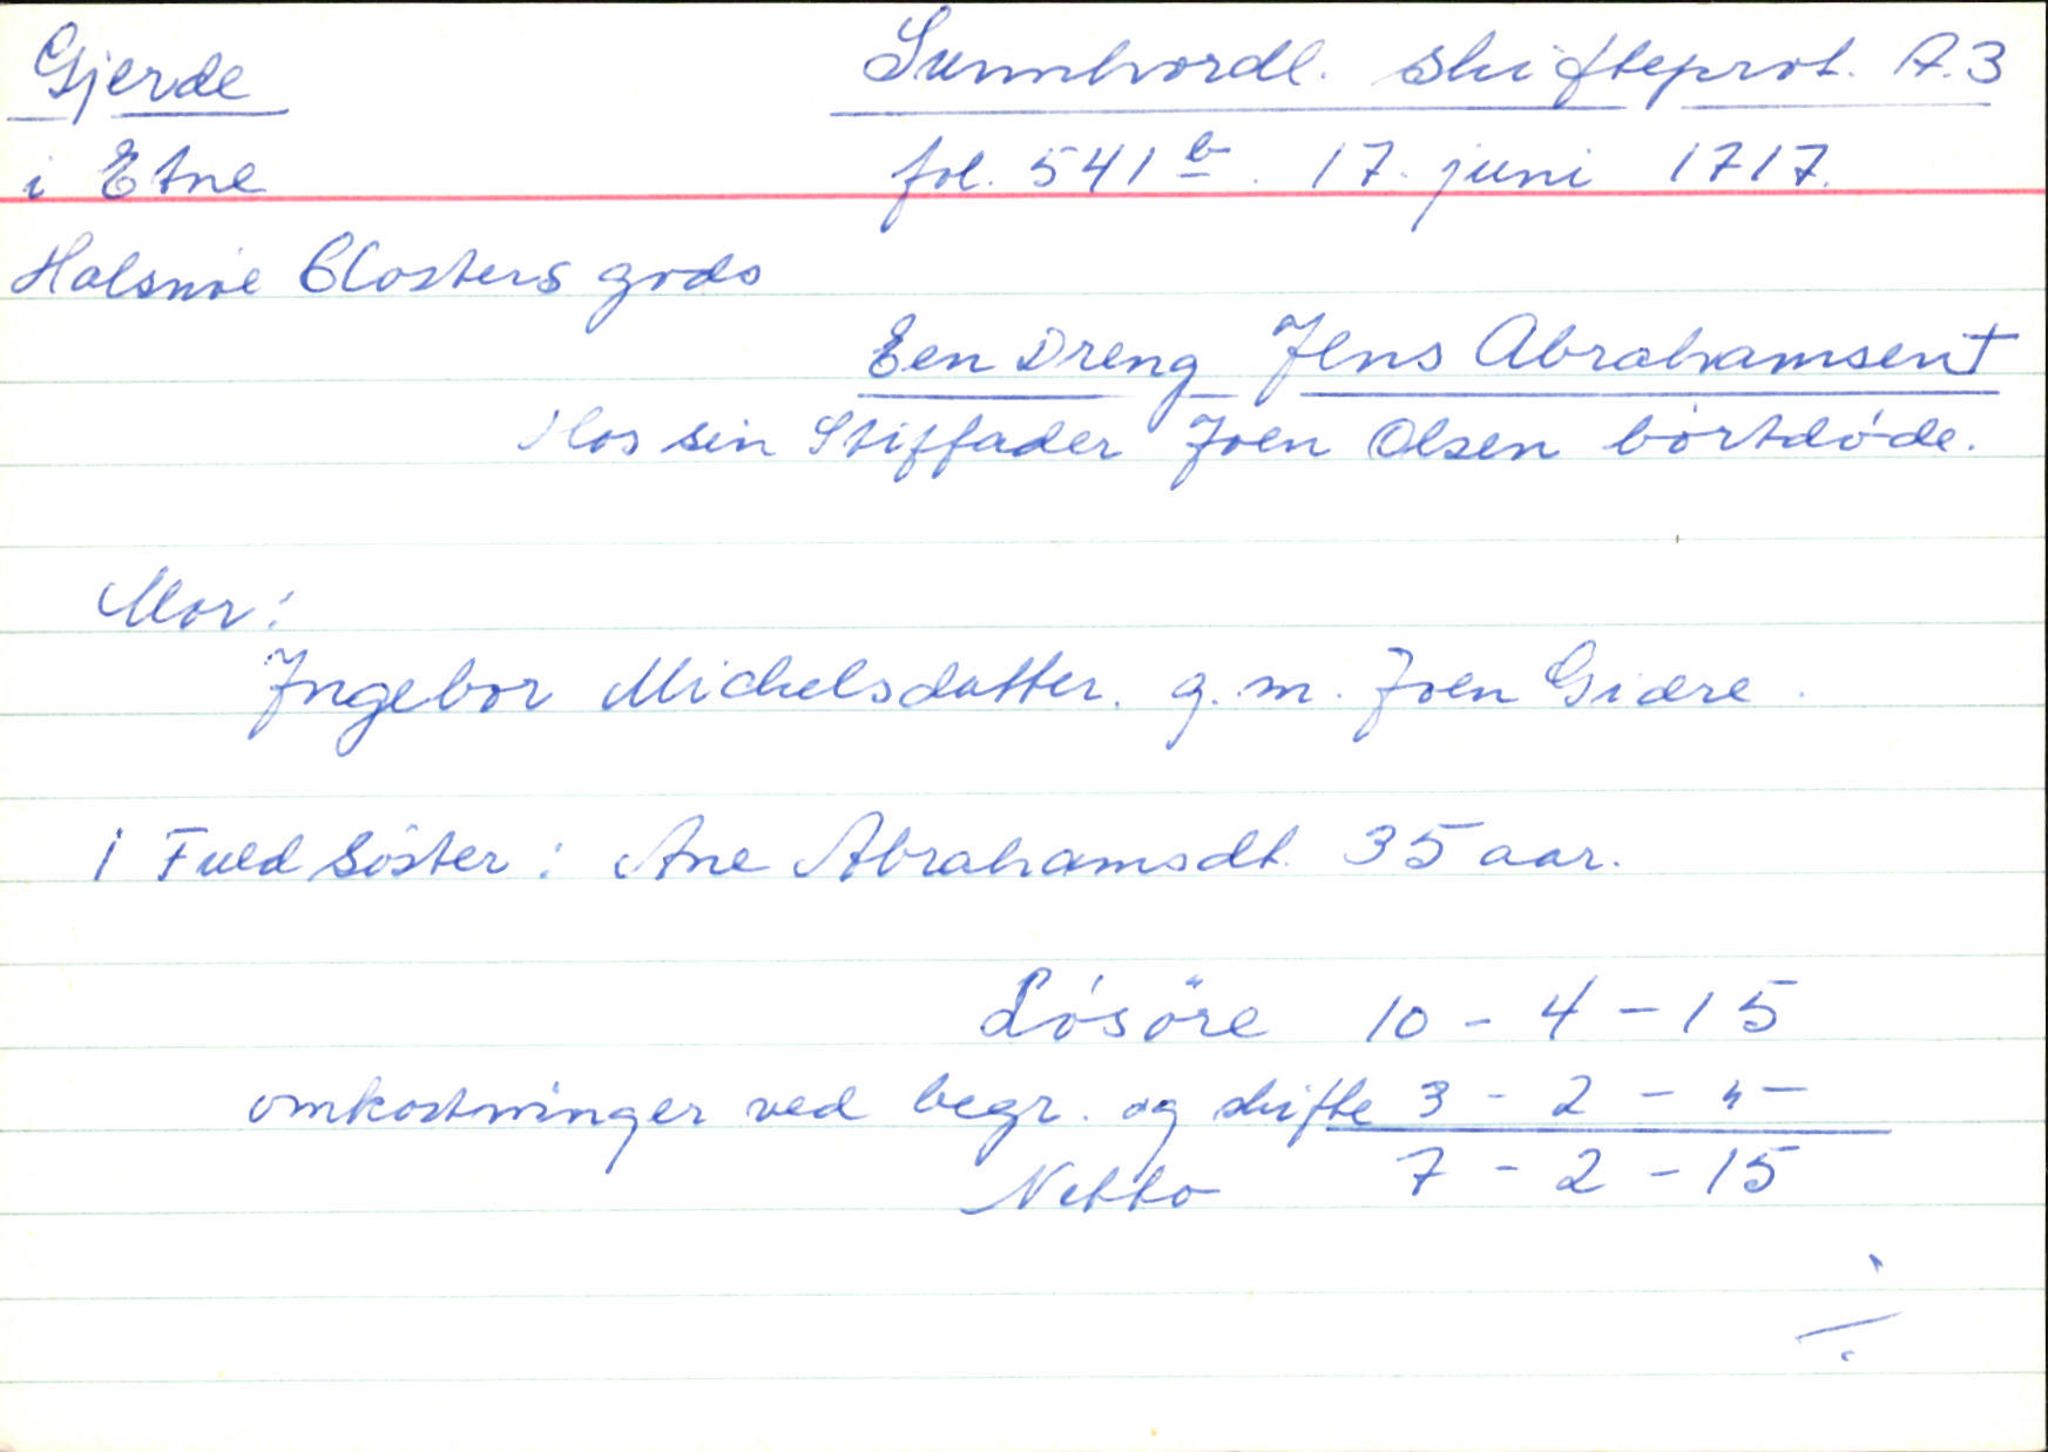 Gjerde
i Etne
Sunnhordl. skifteprot. A.3
fol. 541 b. 17. juni 1717.
Halsnöe Closters gods
Een Dreng Jens Abrahamsen †
Hos sin Stiffader Joen Olsen bortdöde.
Mor:
Ingebor Michelsdatter. g.m. Joen Giære.
1 Fuld Söster: Ane Abrahamsdt. 35 aar.
Lösöre 10 - 4 - 15
omkostninger ved begr. og skifte 3 - 2 - " -
Netto 7 - 2 - 15